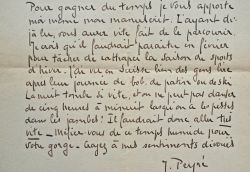 Pour gagner du temps je vous apporte
moi même mon manuscrit. L'ayant dé-
jà lu, vous aurez vite fait de le parcourir.
Je crois qu'il faudrait paraître en février
pour tâcher de rattraper la saison de sports
d'hiver. J'ai vu en Suisse bien des gens lire
après leur journée de bob, de patin ou de ski.
La nuit tombe si vite, et on ne peut pas danser
de cinq heures à minuit lorsqu'on a les pistes
dans les jambes! Il faudrait donc aller très
vite — Méfiez-vous de ce temps humide pour
votre gorge. Croyez à mes sentiments dévoués
J. Peyré